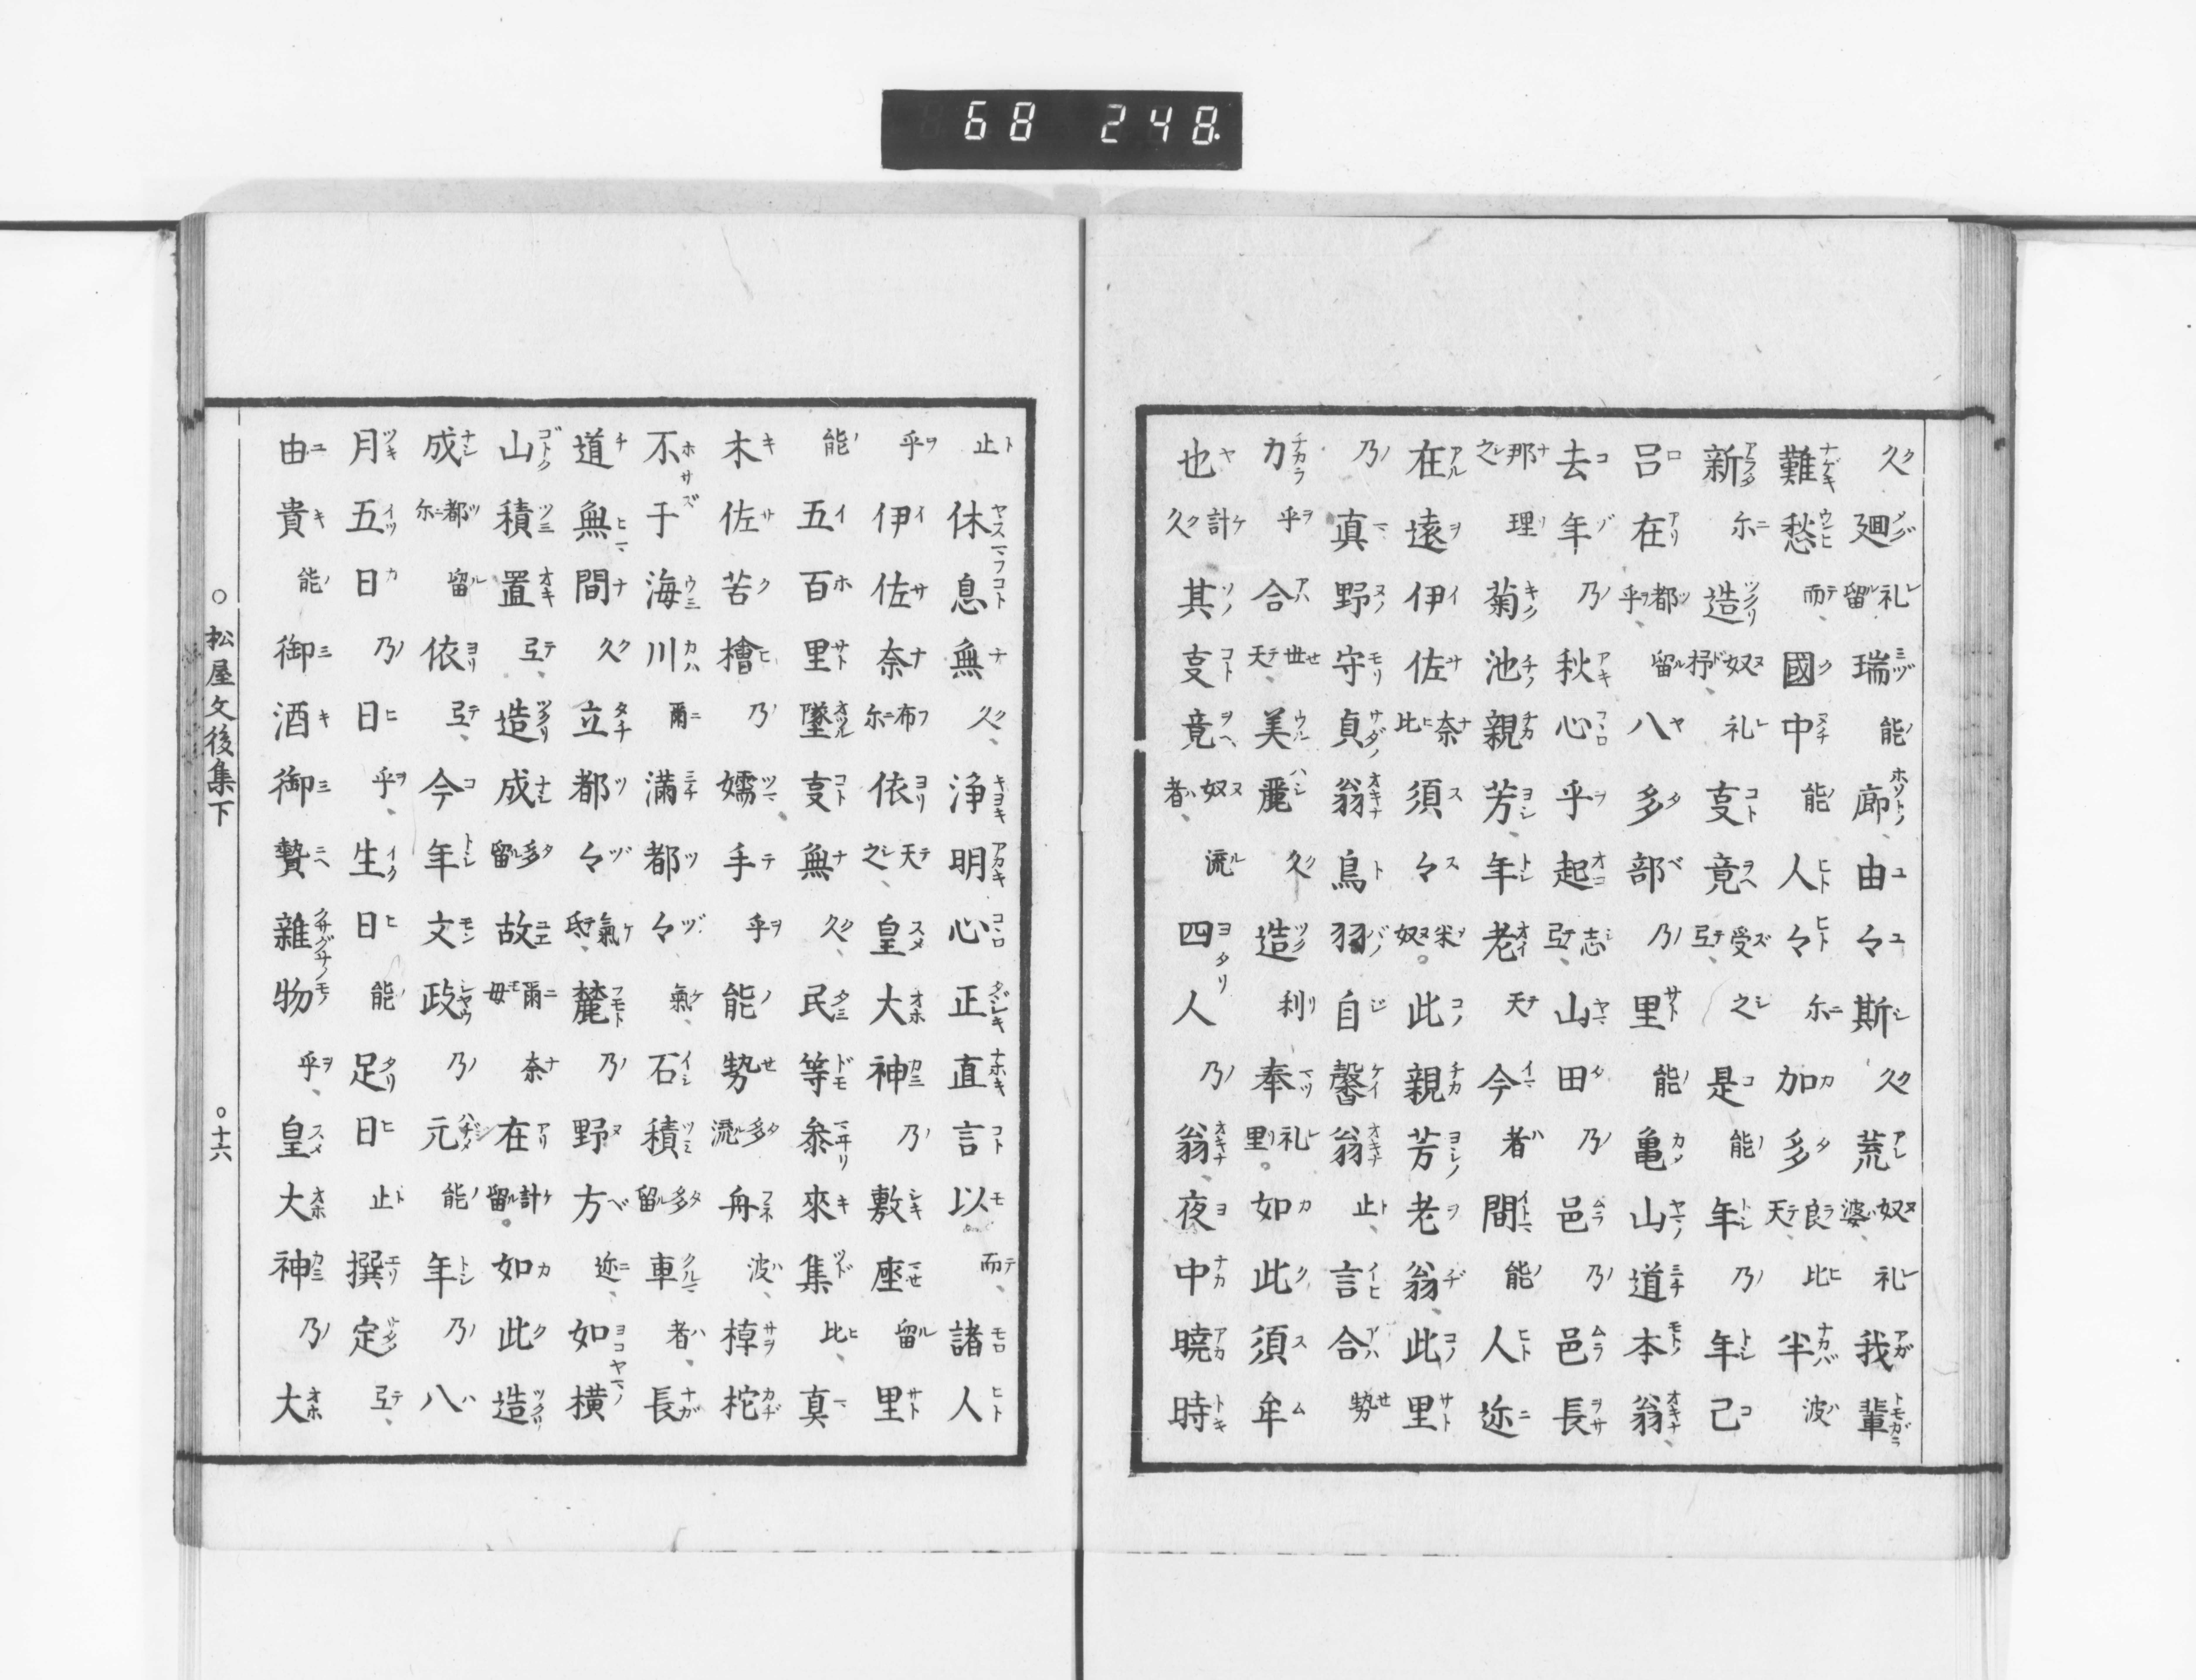 68 248.
久廻礼留瑞能廊由々斯久荒奴婆、礼我輩
難愁而、國中能人々尓加多良天比半波
新尓造礼亊竟受弖、之是能年乃年己
呂在都乎、奴杼留八多部乃里能亀山道本翁、
去年乃秋心乎起志弖、山田乃邑乃邑長
那之理菊池親芳、年老天今者間能人迩
在遠伊佐奈比須々米奴。此親芳老翁、此里
乃真野守貞翁鳥羽自馨翁止、言合勢
力乎合世天、美麗久造利奉礼里。如此須牟
也計久其亊竟奴者、流四人乃翁、夜中曉時
止休息無久、浄明心正直言以而、諸人
乎伊佐奈布尓依天之、皇大神乃敷座留里
能五百里墜亊無久、民等叅來集比、真
木佐苦檜乃嬬手乎能勢多流舟波、棹柁
不于海川爾満都々氣、石積多留車者、長
道無間久立都々氣氐、麓乃野方迩、如横
山積置弖、造成多留故爾毋奈在計留。如此造
成都尓留依弖、今年文政乃元能年乃八
月五日乃日乎、生日能足日止撰定弖、
由貴能御酒御贄雜物乎、皇大神乃大
○松屋文後集下 ○十六